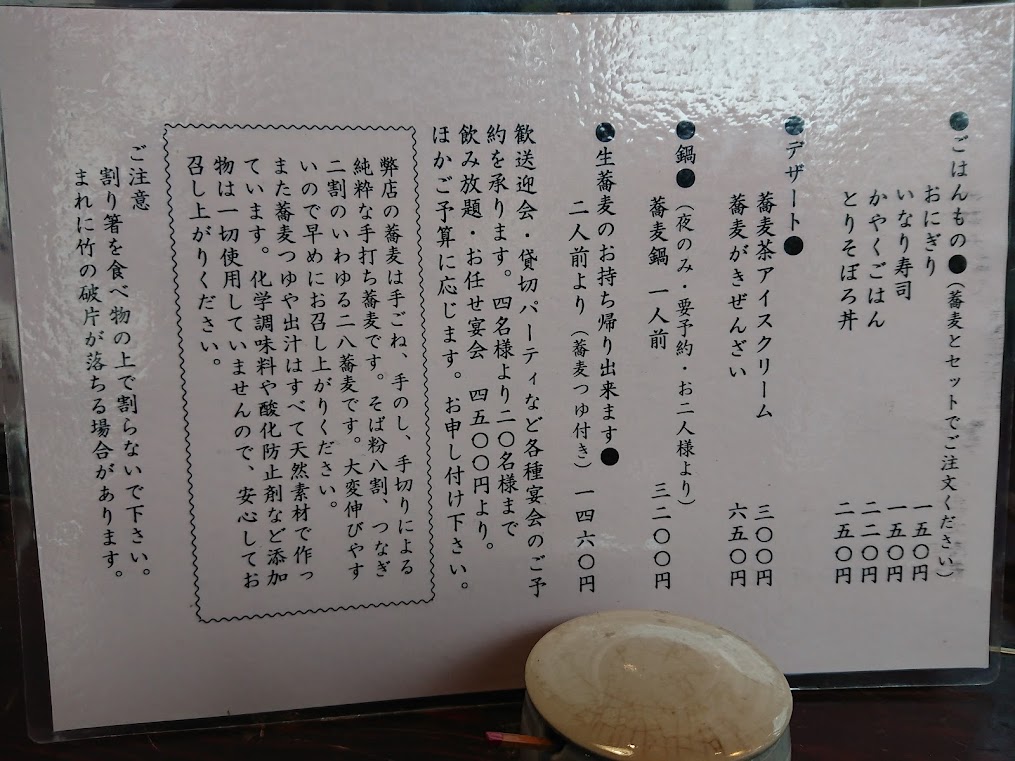 ●ごはんもの●(蕎麦とセットでご注文ください)
おにぎり 一五〇円
いなり寿司 一五〇円
かやくごはん 二二〇円
とりそぼろ丼 二五〇円
●デザート●
蕎麦茶アイスクリーム 三〇〇円
蕎麦がきぜんざい 六五〇円
●鍋●(夜のみ・要予約・お二人様より)
蕎麦鍋 一人前 三二〇〇円
●生蕎麦のお持ち帰り出来ます●
二人前より(蕎麦つゆ付き)一四六〇円
歓送迎会・貸切パーティなど各種宴会のご予
約を承ります。四名様より二〇名様まで
飲み放題・お任せ宴会 四五〇〇円より。
ほかご予算に応じます。お申し付け下さい。
弊店の蕎麦は手ごね、手のし、手切りによる
純粋な手打ち蕎麦です。そば粉八割、つなぎ
二割のいわゆる二八蕎麦です。大変伸びやす
いので早めにお召し上がりください。
また蕎麦つゆや出汁はすべて天然素材で作っ
ています。化学調味料や酸化防止剤など添加
物は一切使用していませんので、安心してお
召し上がりください。
ご注意
割り箸を食べ物の上で割らないで下さい。
まれに竹の破片が落ちる場合があります。